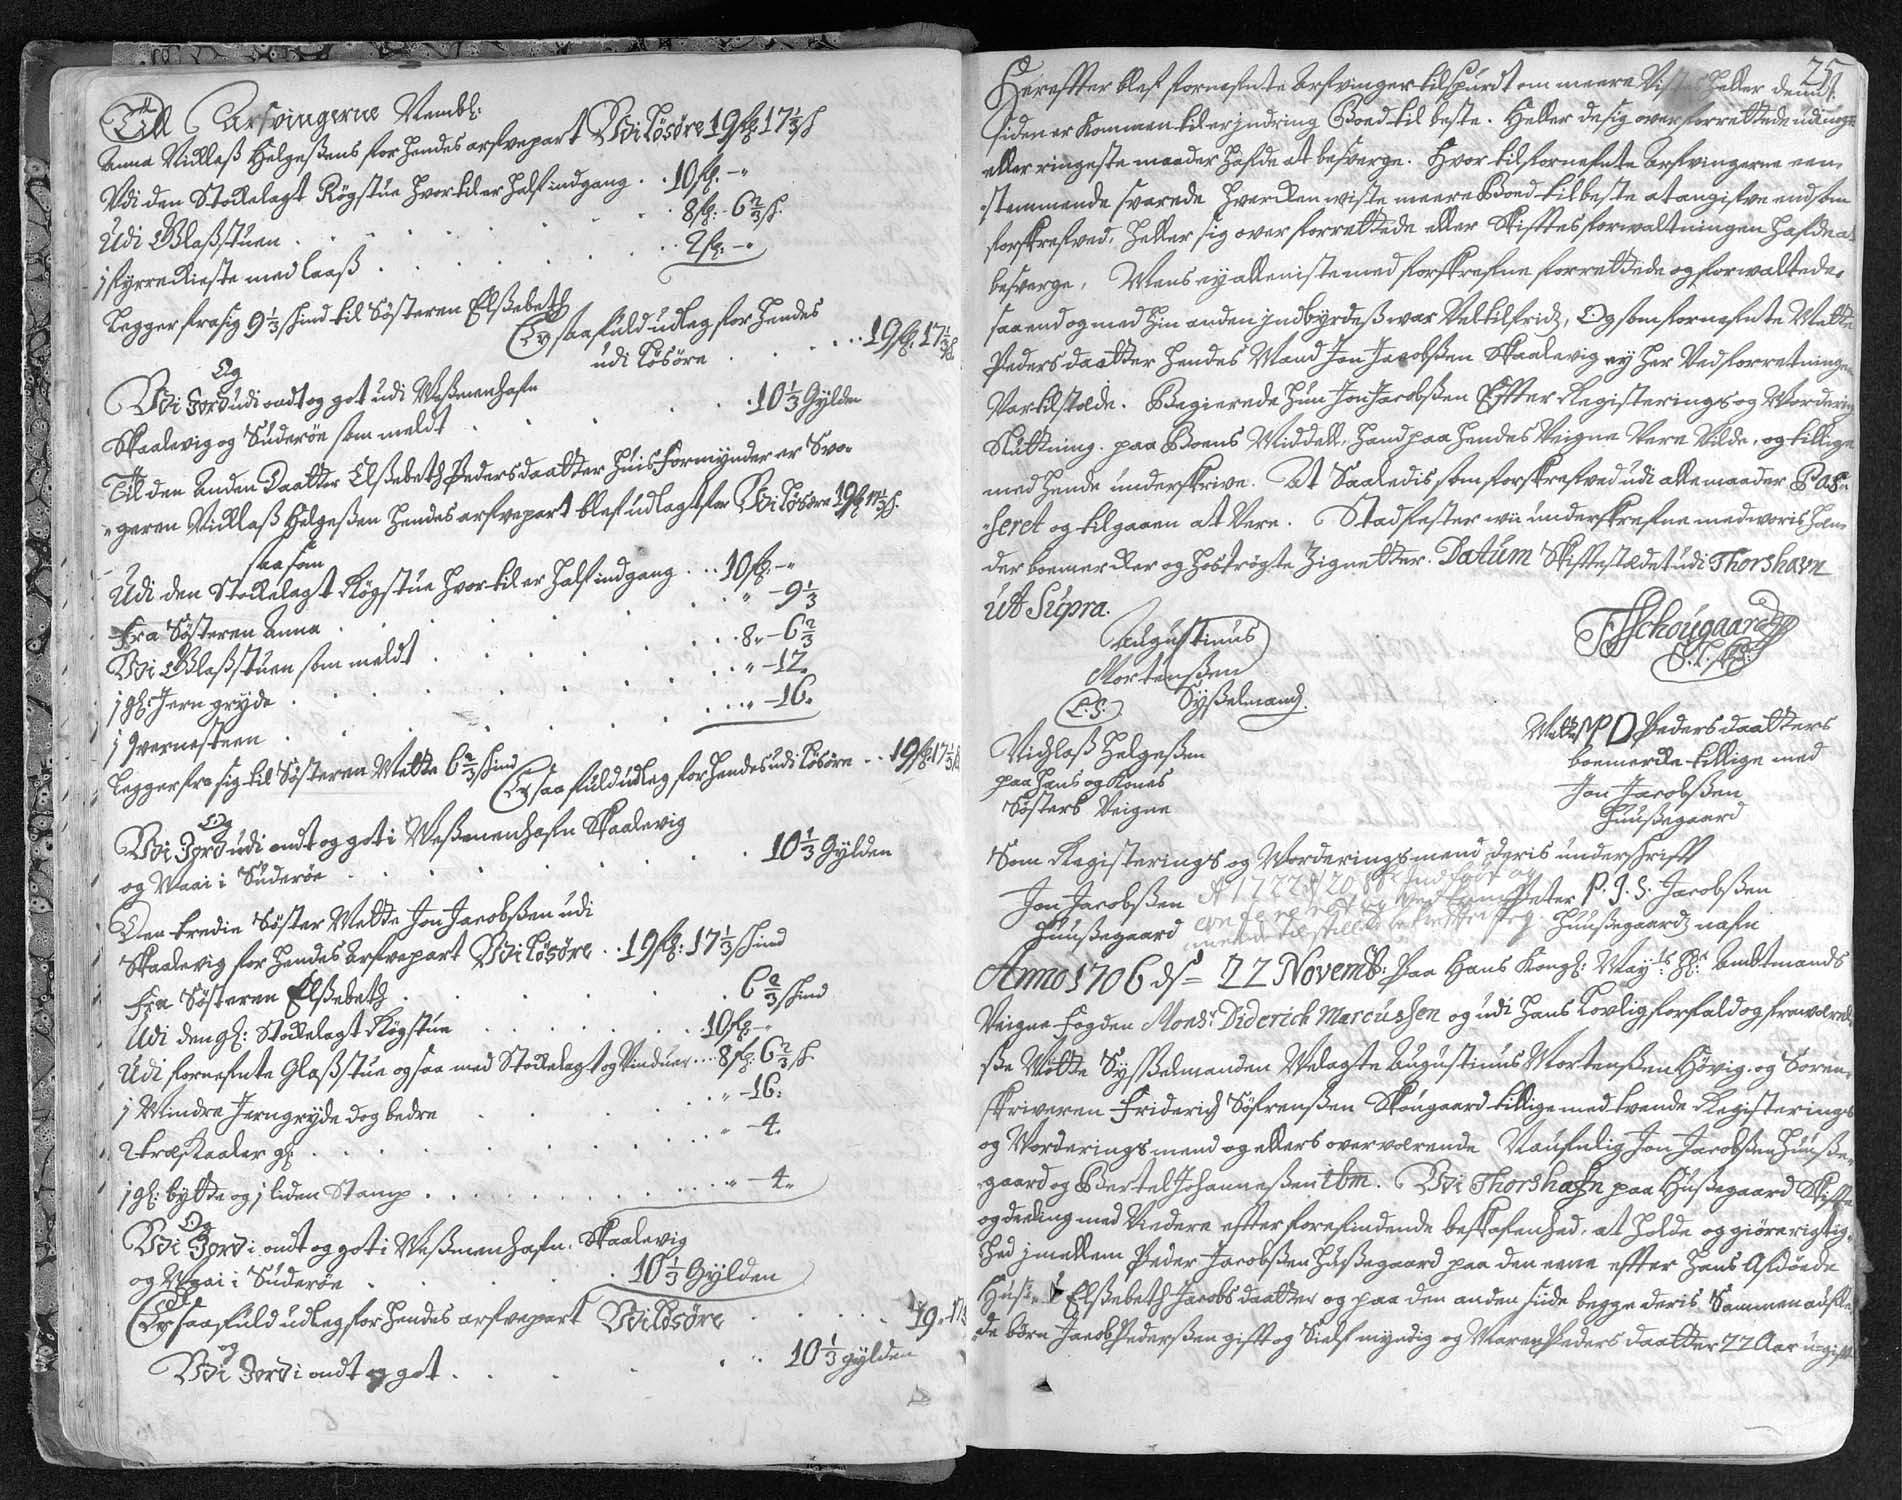 Till Arfvingerne Nembl:
Anna Nicklaß Helgeßens for hendes arfvepart Udi Løsøre 19 fl: 17 1/3 ß
Udi den Stockelagt Røgstue hvortil er halfindgang . . 10 fl: - "
Udi Glaßstuen . . . . . . 8 fl: - 6 2/3 ß.
j fyrre Kieste med laaß . . . . . . 2 fl: - "
Legger fra sig 9 1/3 skind til Søsteren Elßebeth
Er saa fuld udleg for hendes
udi Løsøre . . . . . . 19 fl: 17 1/3 ß
Og
Udi Jord udi ondt og got udi Weßmenhafn
Skaalevig og Suderøe som meldt . . . . . . 10 1/3 Gylden
Til den Anden Daatter Elßebeth Pedersdaatter huis Formynder er Svo-
-geren Nicklaß Helgeßen hendes arfvepart blef udlagt for Udi Løsøre 19 fl: 17 1/3 ß.
saasom
Udi den Stockelagt Røgstue hvortil er half indgang . . 10 fl: - "
Fra Søsteren Anna . . . . . . " - 9 1/3
Udi Glaßstuen som meldt . . . . . . 8 " - 6 2/3
j gl: Jern gryde . . . . . . " - 12.
j Qvernesteen . . . . . . " - 16.
Legger fra sig til Søsteren Mette 6 2/3 skind
Er saa fuld udleg for hendes udi Løsøre . . 19 fl: 17 1/3 ß
Og
Udi Jord udi ondt og got i Weßmenhafn Skaalevig
og Waai i Suderøe . . . . . . 10 1/3 Gylden
Den tredie Søster Mette Jon Jacobßen udi
Skaalevig for hendes Arfvepart Udi Løsøre . . 19 fl: 17 1/3 skind
Fra Søsteren Elßebeth . . . . . . 6 2/3 skind
Udi den gl: Stockelagt Røgstue . . . . . . 10 fl: - "
Udi fornefnte Glaßstue og saa med Stockelagt og Vinduer . . . 8 fl: 6 2/3 ß
j Mindre Jerngryde dog bedre . . . . . . " - 16:
2 træ Kaaler gl: . . . . . . " - 4.
j gl: bytte og j liden Stamp . . . . . . " - 4 "
Og
Udi Jord i ondt og got i Weßmenhafn, Skaalevig
og Waai i Suderøe . . . . . . 10 1/3 Gylden
Er saa fuld udleg for hendes arfvepart Udi Løsøre . . . . 19 "
og
Udi Jord i ondt og got . . . . . . 10 1/3 gylden
25
Herefter blef fornefnte Arfvinger tilspurdt om meere heller
siden er kommen til erindring Boed til beste. Heller de sig over forrettede udi noge
eller ringeste maader hafde at besverge. Hvor til fornefnte Arfvingerne een-
stemmende svarede hvercken wiste meere Boed til beste at angifve end som
forskrefved, heller sig over forrettede eller Skiftes forwaltningen hafde a
besverge, Mens ey alleniste med forskrefne forrettede og forwaltede
saa end og med hin anden Indbyrdeß war Vel tilfridz, Og som fornefnte Mette
Peders daatter hendes Mand Jon Jacobßen Skaalevig ey her Ved forretninge
Var tilstæde. Begierede hun Jon Jacobßen Effter Registerings og Wordering
Sluttning paa Boens Middell, hand paa hendes Veigne Vere Vilde, og tillige
med hende underskrive. At Saaledis som forskrefved udi alle maader Pas-
seret og tilgaaen at Vere. Stadfester wii underskrefne med woris hæn-
der boemercker og hostrøgte Zignetter. Datum Skiftestædet udi Thorshavn
ut Supra.
Augustinus
Mortenßen
L. S. Syßelmand.
FSchougaard
Nichlaß Helgeßen
paa hans og Kones
Søsters Veigne
Mette M P D Pedersdaatters
boemercke tillige med
Jon Jacobßen
Huußegaard
Som Registerings og Worderingsmend deris underskrifft
Jon Jacobßen
Huußegaard
Peter P. J. S: Jacobßen
Huußegaardz nafn
Anno 1706 ds 22 Novemb: paa Hans Kongl: May:ts Amtmands
Veigne Fogden Monsr Diderich Marcussen og udi hans Lovlig forfald og frawærel-
ße Møtte Sysßelmanden Velagte Augustinus Mortenßen Høvig, og Soren-
skriveren Friderich Søfrenßen Skougaard tillige med tvende Registerings
og Worderings mend og ellers overværende Naufnlig Jon Jacobßen Huuße-
gaard og Bertel Johanneßen ibm. Udi Thorshafn paa Hußegaard Skifte
og deeling med Videre efter forefindende beskafenhed, at holde og giøre rigtig-
hed jmellem Peder Jacobßen Hußegaard paa den eene efter hans Afdøede
Hust: Elßebeth Jacobsdaatter og paa den anden siide begge deris Sammen aufle-
de børn Jacob Pederßen gift og Sielf myndig og Maren Peders daatter 22 Aar ugift